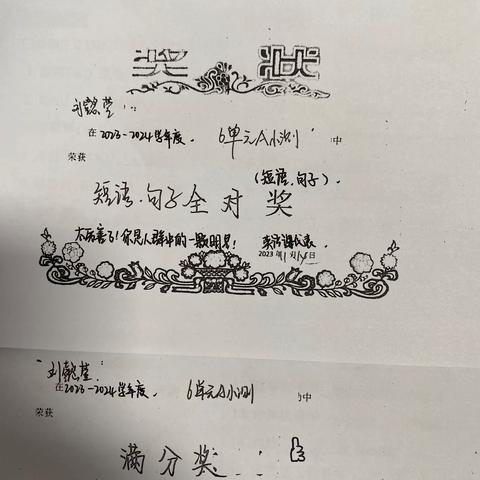 奖 状
刘懿莹：
在2023-2024学年度，6单元A小测 中
荣获
（短语、句子）。
短语、句子全对 奖
太厉害了！你是人群中的一颗明星！ 英语课代表
2023年11月15日
刘懿莹：
在2023-2024学年度，6单元A小测 中
荣获
满分奖